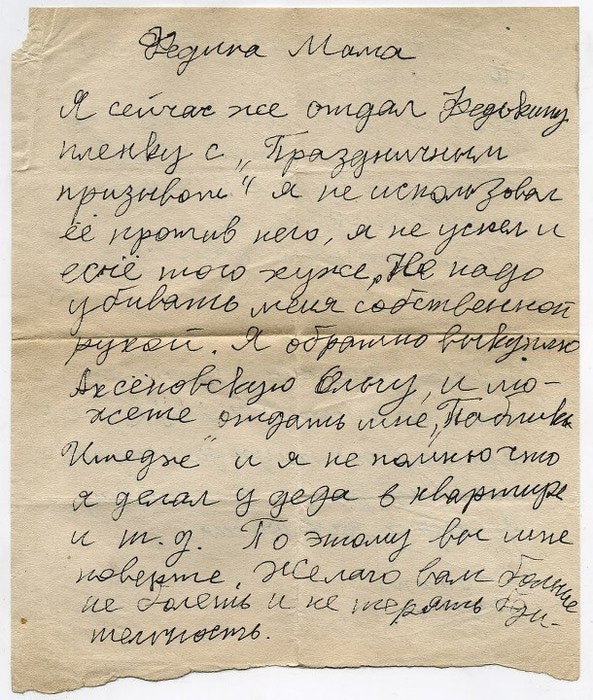 Федина Мама
Я сейчас же отдал Федькину
пленку с „Праздничным
призывом“ я не использовал
её против него, я не успел и
ещё того хуже, Не надо
убивать меня собственной
рукой. Я обратно выкуплю
Аксёновскую Ольгу, и мо-
жете отдать мне „Паблик
Имедж“ и я не помню что
я делал у деда в квартире
и т.д. По этому вы мне
поверте. Желаю вам больше
не болеть и не терять бди-
тельность.